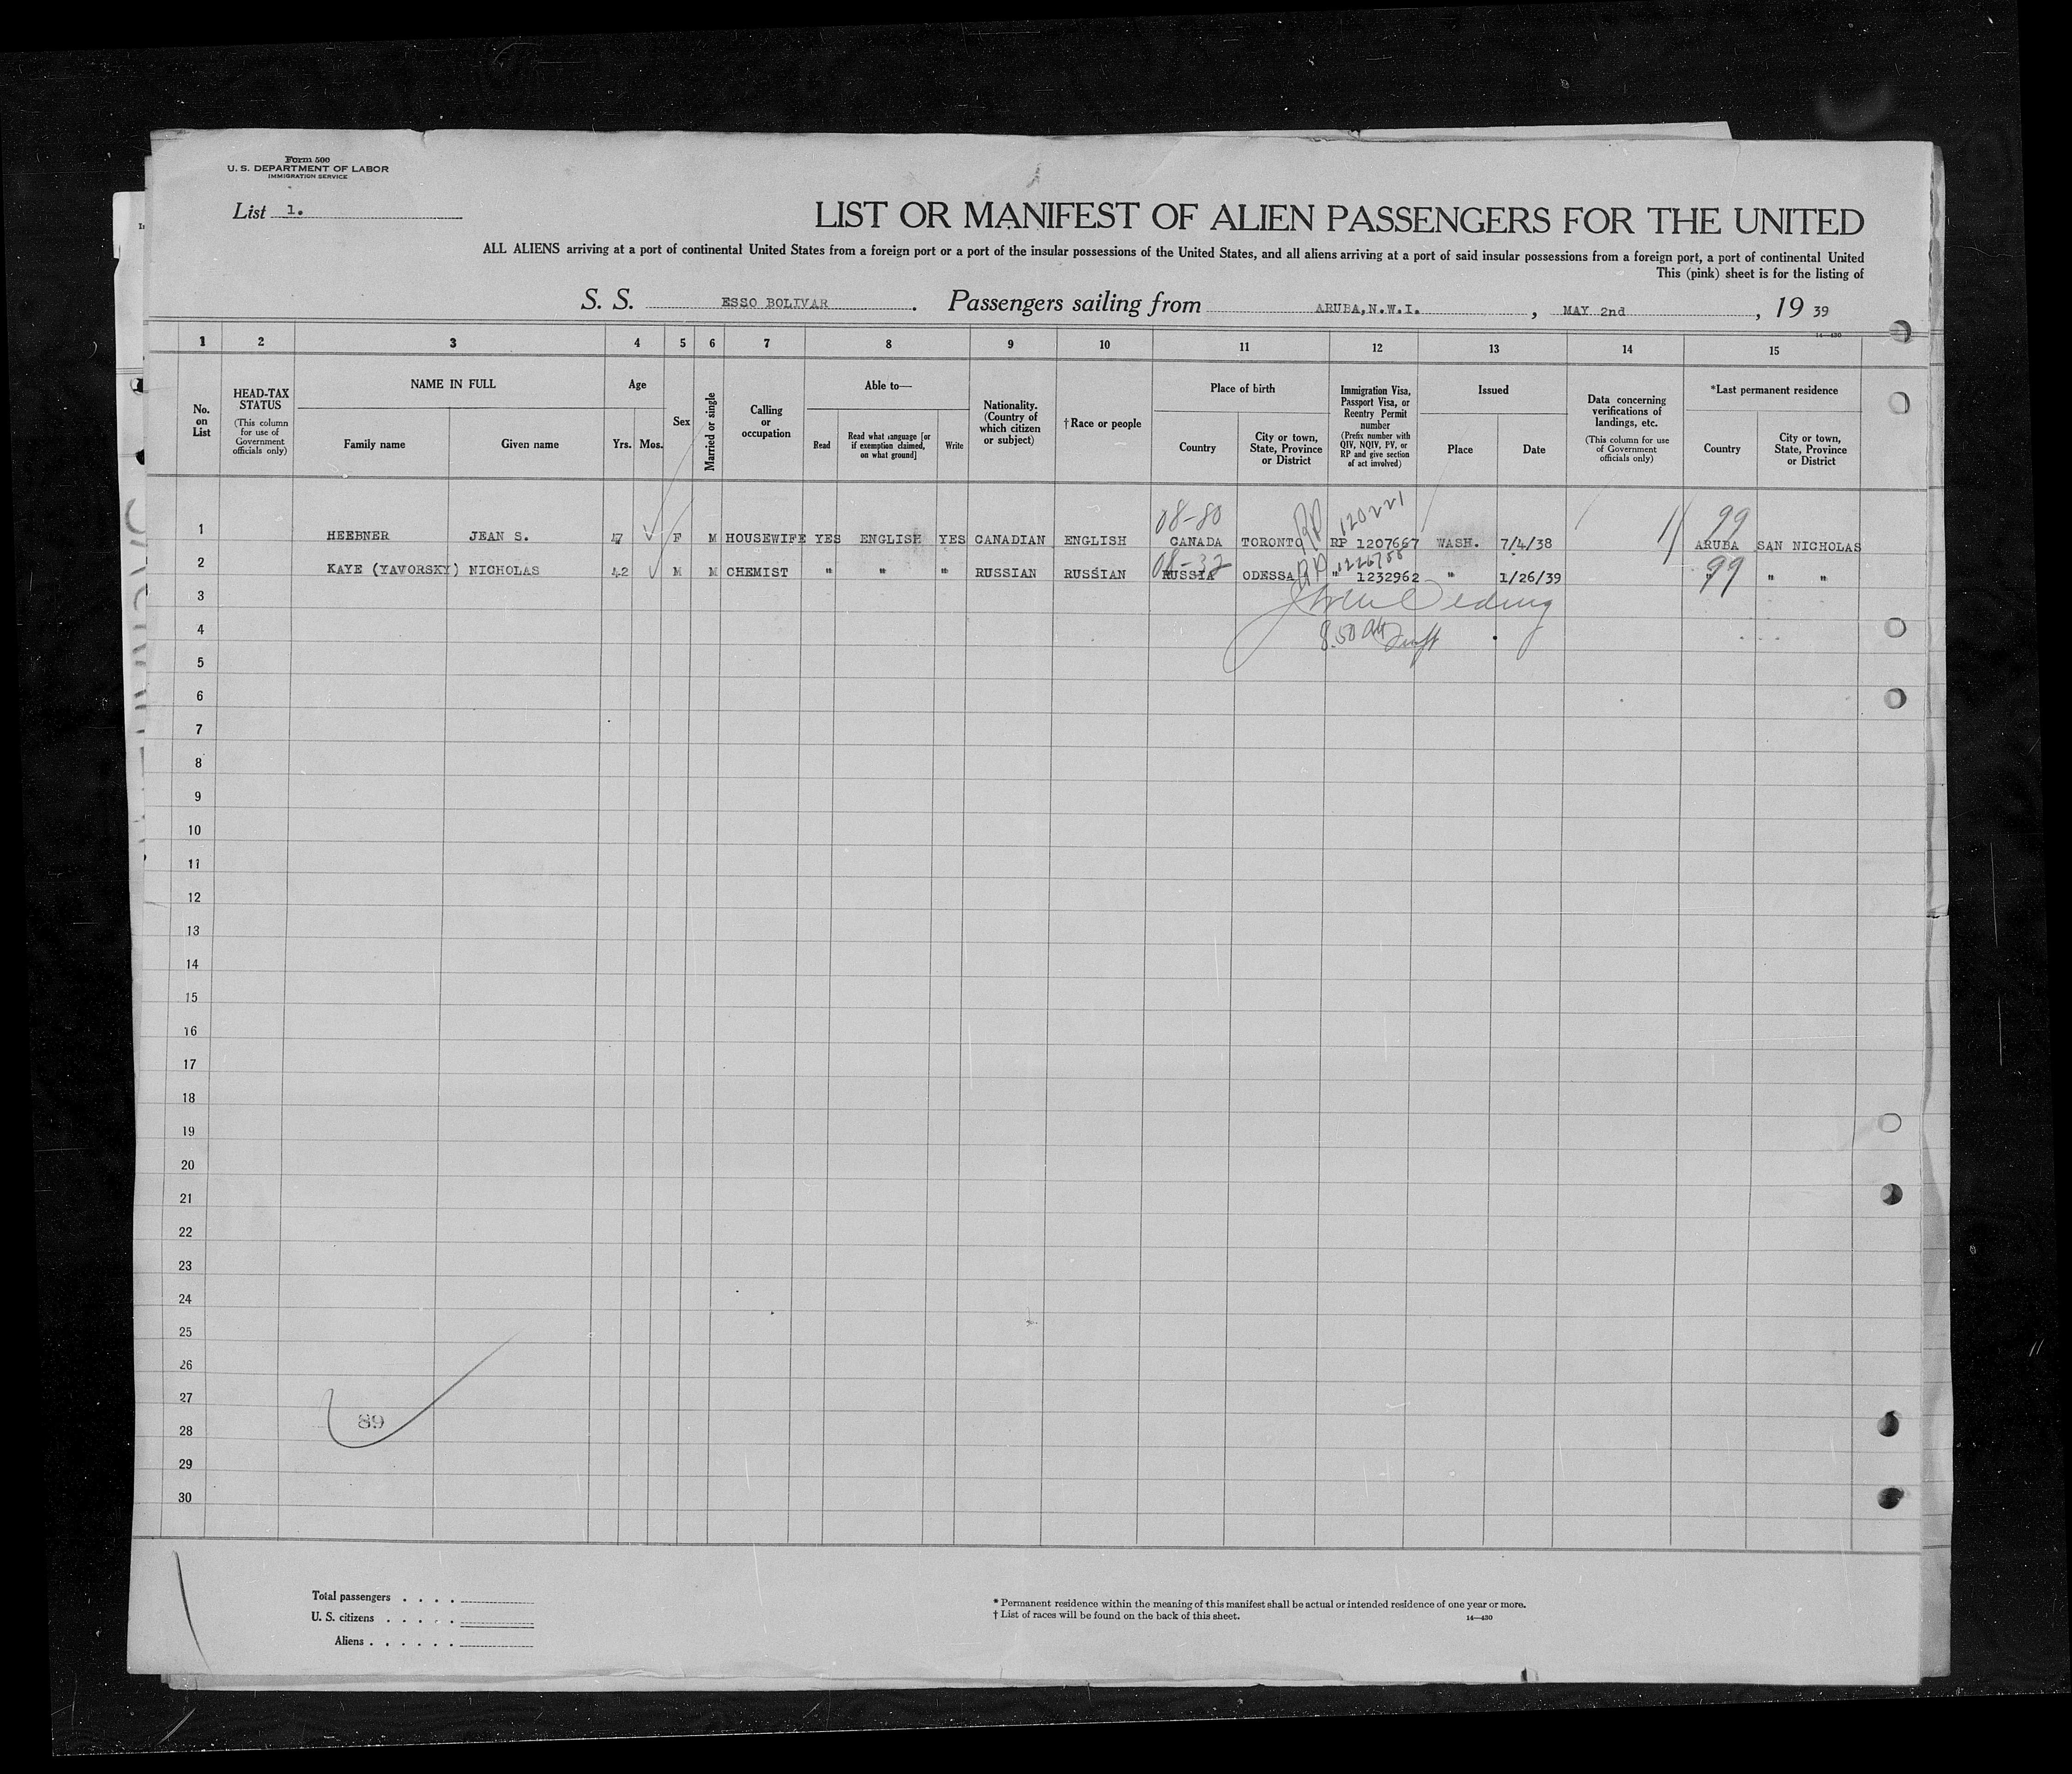 Form 500
U. S. DEPARTMENT OF LABOR
IMMIGRATION SERVICE
List 1.
LIST OR MANIFEST OF ALIEN PASSENGERS FOR THE UNITED
ALL ALIENS arriving at a port of continental United States from a foreign port or a port of the insular possessions of the United States, and all aliens arriving at a port of said insular possessions from a foreign port, a port of continental United
This (pink) sheet is for the listing of
S. S. ESSO BOLIVAR. Passengers sailing from ARUBA,N.W.I., MAY 2nd, 19 39
14-430
1 2 3 4 5 6 7 8 9 10 11 12 13 14 15
No. on List
HEAD-TAX STATUS
(This column for use of Government officials only)
NAME IN FULL
Family name Given name
Age
Yrs. Mos.
Sex
Married or single
Calling or occupation
Able to—
Read
Read what language [or if exemption claimed, on what ground]
Write
Nationality. (Country of which citizen or subject)
†Race or people
Place of birth
Country
City or town, State, Province or District
Immigration Visa, Passport Visa, or Reentry Permit number
(Prefix number with QIV, NQIV, PV, or RP and give section of act involved)
Issued
Place Date
Data concerning verifications of landings, etc.
(This column for use of Government officials only)
*Last permanent residence
Country
City or town, State, Province or District
08-80 RP 120221 99
1 HEEBNER JEAN S. F M HOUSEWIFE YES ENGLISH YES CANADIAN ENGLISH CANADA TORONTO RP 1207667 WASH. 7/4/38 ARUBA SAN NICHOLAS
08-32 RP 99
2 KAYE (YAVORSKY) NICHOLAS 42 M M CHEMIST " " " RUSSIAN RUSSIAN RUSSIA ODESSA " 1232962 " 1/26/39 " " "
3
4 8.50 AM
5
6
7
8
9
10
11
12
13
14
15
16
17
18
19
20
21
22
23
24
25
26
27
89
28
29
30
Total passengers . . . .
U. S. citizens . . . . .
Aliens . . . . . .
* Permanent residence within the meaning of this manifest shall be actual or intended residence of one year or more.
† List of races will be found on the back of this sheet. 14—430